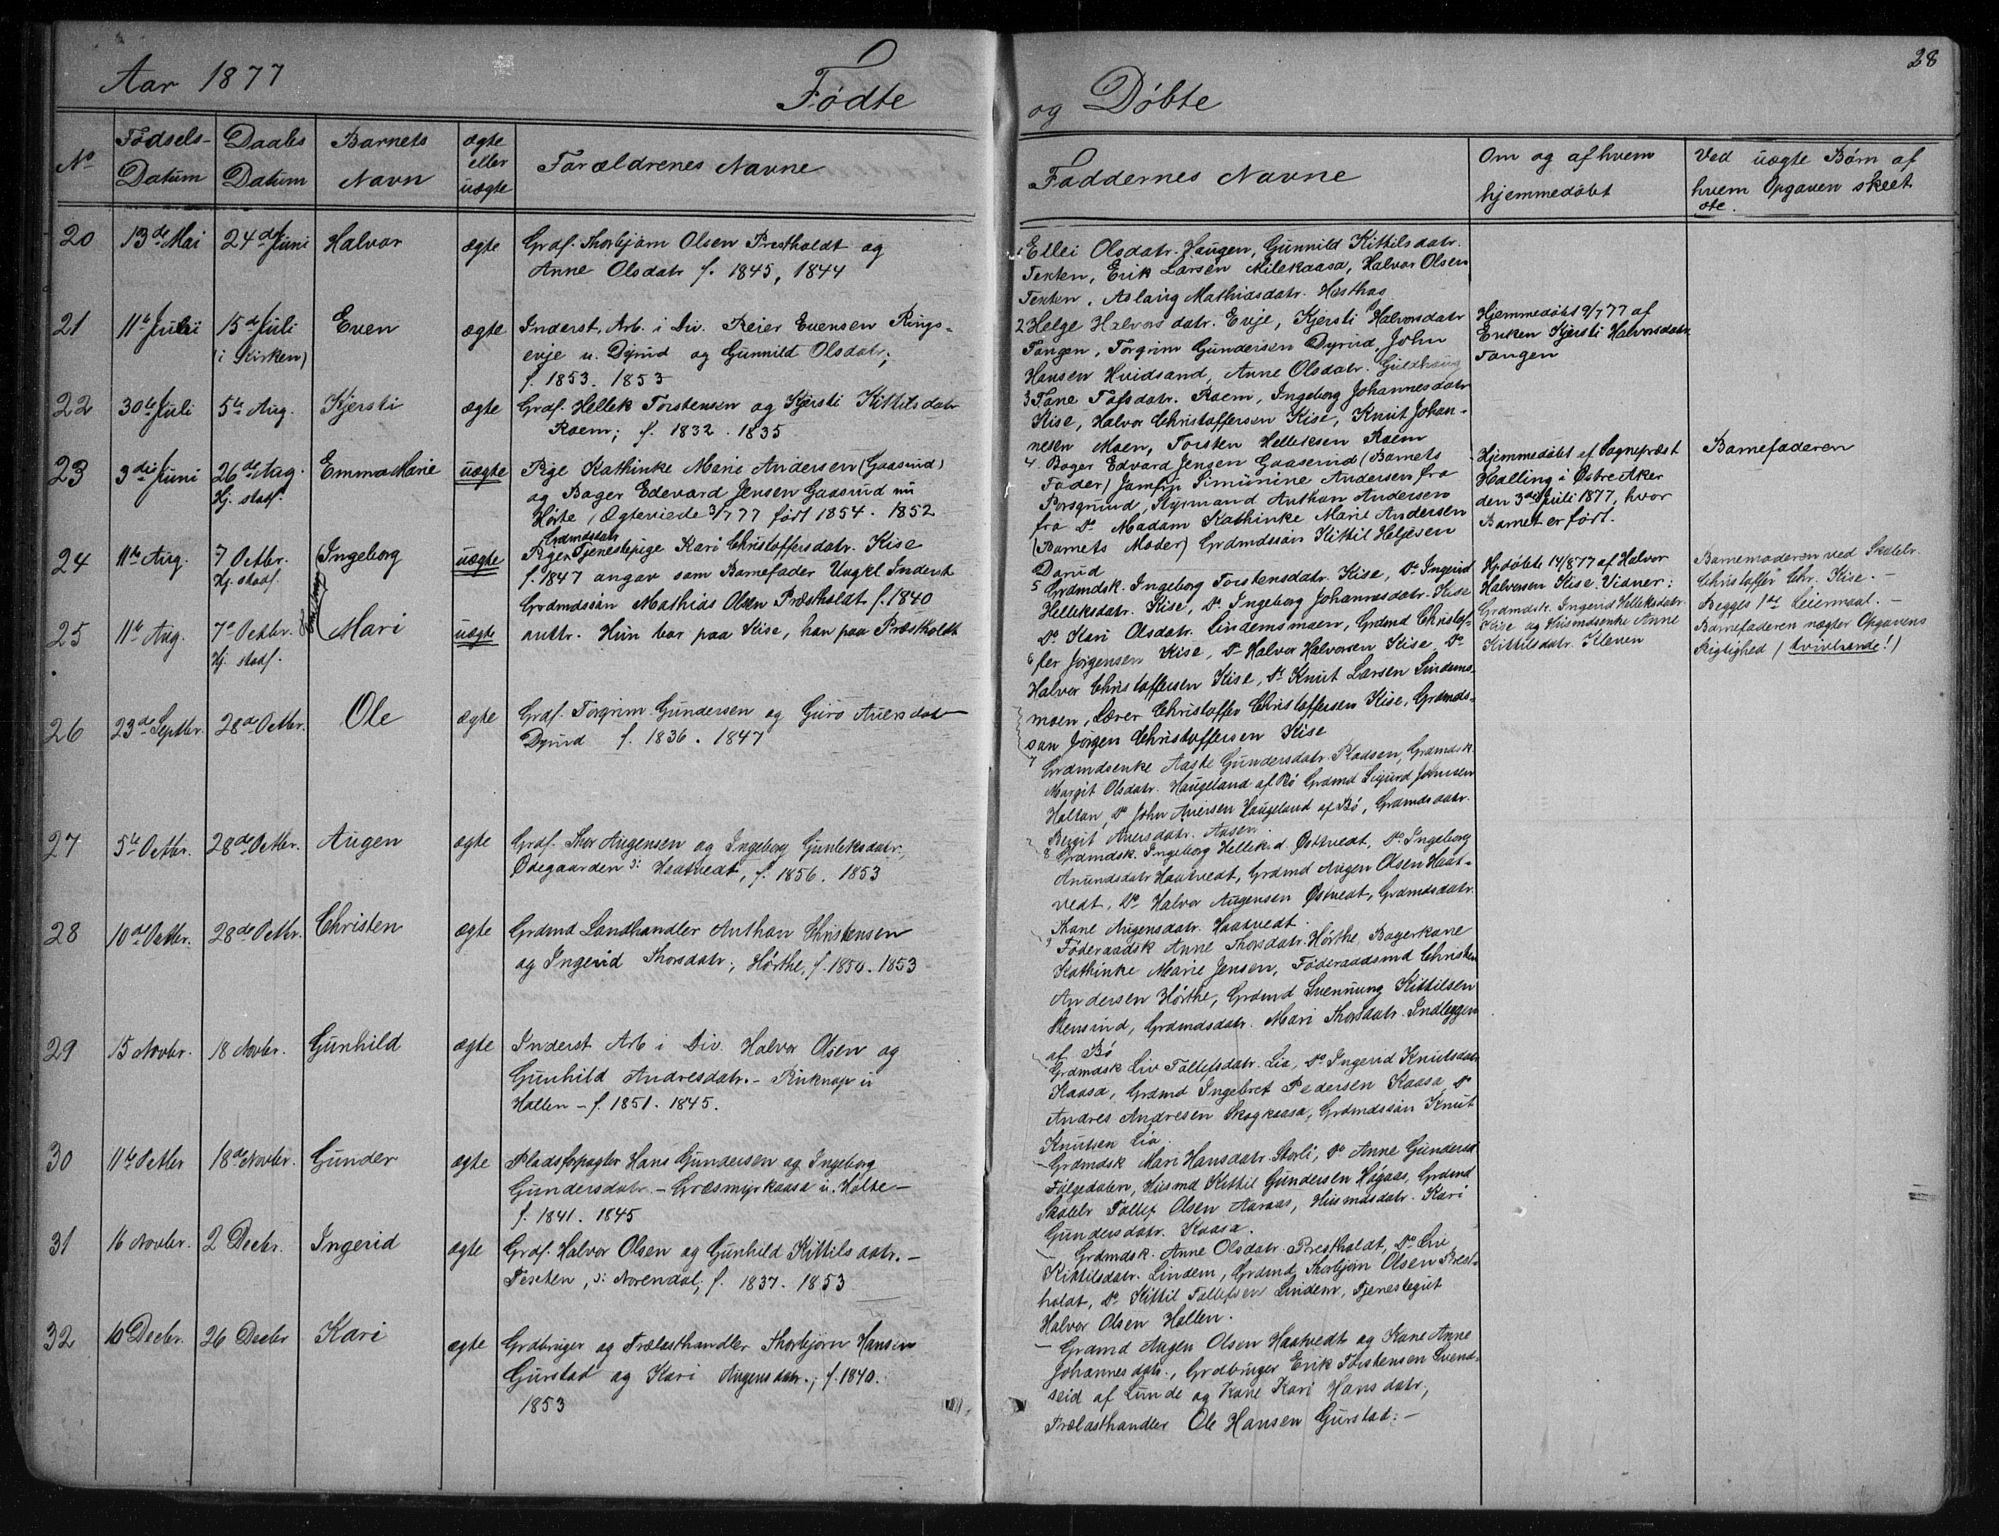 28
Aar 1877
Fødte
og Døbte
No
Fødsels-
Datum
Daabs
Datum
Barnets
Navn
ægte
eller
uægte
Forældrenes Navne
Faddernes Navne
Om og af hvem
hjemmedøbt
Ved uægte Børn af
hvem Opgaven skeet
ote.
20 13de Mai 24de Juni Halvor ægte
Grdf. Thorbjørn Olsen Prestholdt og
Anne Olsdatr f. 1845, 1844
1 Ellei Olsdatr. Haugen, Gunnild Kittilsdatr.
Texten, Erik Larsen Milekaasa, Halvor Olsen
Texten, Aslaug Mathisdatr. Hasthag
21 11te Juli 15de Juli
(i Kirken)
Even ægte
Inderst, Arb. i Div. Reier Evensen Rings-
evje u. Dyrud og Gunnild Olsdatr;
f. 1853. 1853
2 Helge Halvorsdatr. Evje, Kjersti Halvorsdatr
Tangen, Torgrim Gundersen Dyrud, John
Hansen Hvidsand, Anne Olsdatr. Guldhaug
Hjemmedøbt 9/7 77 af
Enken Kjersti Halvorsdatr
Tangen
22 30te Juli 5te Aug. Kjersti ægte
Grdf. Hellek Torstensen og Kjersti Kittilsdatr
Roem; f. 1832. 1835
3 Tone Tofsdatr. Roem, Ingeborg Johannesdatr
Kise, Halvor Christoffersen Kise, Knut Johan-
nesen Moen, Torsten Helleksen Roem
23 3die Juni 26de Aug.
Hj. stadf.
Emma Marie uægte
Pige Kathinke Marie Andersen (Gaasrud)
og Bager Edevard Jensen Gaasrud nu
Hørte, (Ægteviede 3/7 77 født 1854. 1852
4. Bager Edvard Jensen Gaaserud (Barnets
Fader) Jomfru Simmine Andersen fra
Porsgrund, Styrmand Anthon Andersen
fra Do Madam Kathinke Marie Andersen
(Barnets Moder) Grdmdssøn Kittil Heljesen
Dyrud
Hjemmedøbt af Sognepræst
Halling i Østre Aker
den 3die Juli 1877, hvor
Barnet er født.
Barnefaderen
24 11te Aug. 7 Octbr.
Hj. stadf.
Ingeborg uægte
Tvillinger
Grdmdsdatr
Pigen Tjenestepige Kari Christoffersdatr. Kise
f. 1847 angav som Barnefader Ungkl Inderst
Grdmdssøn Mathias Olsen Præstholdt f. 1840
25 11te Aug. 7de Octbr.
Hj. stadf.
Mari uægte
anttr. Hun bor paa Kise, han paa Præstholdt
5 Grdmdsk. Ingeborg Torstensdatr. Kise, Do Ingerid
Helleksdatr. Kise, Do Ingeborg Johannesdatr. Kise
Do Kari Olsdatr. Lindemsmoen, Grdmd Christof-
6 fer Jørgensen Kise, Do Halvor Halvorsen Kise Do
Halvor Christoffersen Kise, Do Knut Larsen Lindems-
moen, Lærer Christoffer Christoffersen Kise, Grdmds-
søn Jørgen Christoffersen Kise
Hjdøbte 14/8 77 af Halvor
Halvorsen Kise Vidner:
Grdmdsk. Ingerid Helleksdatr.
Kise og Husmdsenke Anne
Kittilsdatr. Kleven
Barnemoderen ved Skolelr.
Christoffer Chr. Kise. -
Begges 1ste Leiermaal. -
Barnefaderen nægter Opgavens
Rigtighed (tvivlsende!)
26 23de Septbr. 28de Octbr. Ole ægte
Grdf. Torgrim Gundersen og Guro Aversdatr
Dyrud f. 1836. 1847
7 Grdmdsenke Aaste Gundersdatr. Pladsen, Grdmdsk.
Margit Olsdatr. Haugeland af Bø Grdmd Sigurd Johnsen
Holtan, Do John Aversen Haugeland af Bø, Grdmdsdatr.
Bergit Aversdatr. Aasen
27 5te Octbr. 28de Octbr. Augen ægte
Grdf. Thor Augensen og Ingeborg Gunleksdatr,
Ødegaarden ɔ: Haatvedt, f. 1856. 1853
8 Grdmdsk. Ingeborg Hellek.d. Østtvedt, Do Ingeborg
Anundsdatr Haatvedt, Grdmd Augen Olsen Haat-
vedt, Do Halvor Augensen Østvedt, Grdmdsdatr.
Kane Augensdatr. Haatvedt
28 10de Octbr. 28de Octbr. Christen ægte
Grdmd Landhandler Anthon Christensen
og Ingerid Thorsdatr; Hørthe, f. 1850. 1853
9 Føderaadsk Anne Thorsdatr. Hørthe, Bagerkone
Kathinke Marie Jensen, Føderaadsmd Christen
Andersen Hørthe, Grdmd Svennung Kittilsen
Stensrud, Grdmdsdatr. Mari Thorsdatr. Indleggen
af Bø
29 15 Novbr. 18 Novbr. Gunhild ægte
Inderst Arb i Div. Halvor Olsen og
Gunhild Andresdatr. - Ruknap u
Hollen - f. 1851. 1845.
Grdmdsk Liv Tollefsdatr. Lia, Do Ingerid Knutsdatr
Kaasa, Grdmd Ingebret Pedersen Kaasa, Do
Andres Andresen Skogkaasa, Grdmdssøn Knut
Knutsen Lia.
30 11te Octbr 18de Novbr. Gunder ægte
Pladsforpagter Hans Gundersen og Ingeborg
Gundersdatr. - Græsmyrkaasa u. Holte -
f. 1841. 1845
- Grdmdsk Mari Hansdatr. Storli, Do Anne Gundersd
Følgedalen, Husmd Kittil Gundersen Høgaas, Grdmd
Skolelr Tollef Olsen Aaraas, Husmdsdatr. Kari
Gundersdatr. Kaasa.
31 16 Novbr. 2 Decbr. Ingerid ægte
Grdf. Halvor Olsen og Gunhild Kittilsdatr. -
Texten, ɔ: Norendal; f. 1837. 1853
- Grdmdsk. Anne Olsdatr. Prestholdt, Do Liv
Kittilsdatr. Lindem, Grdmd Thorbjørn Olsen Prest-
holdt, Do Kittil Tollefsen Lindem, Tjenestegut
Halvor Olsen Hollen.
32 10 Decbr. 26 Decbr Kari ægte
Grdbruger og Trælasthandler Thorbjørn Hansen
Gurstad og Kari Augensdatr.; f. 1840.
1853
- Grdmd Augen Olsen Haatvedt og Kone Anne
Johannesdatr., Grdbruger Erik Torstensen Svend-
seid af Lunde og Kone Kari Hansdatr,
Trælasthandler Ole Hansen Gurstad: -